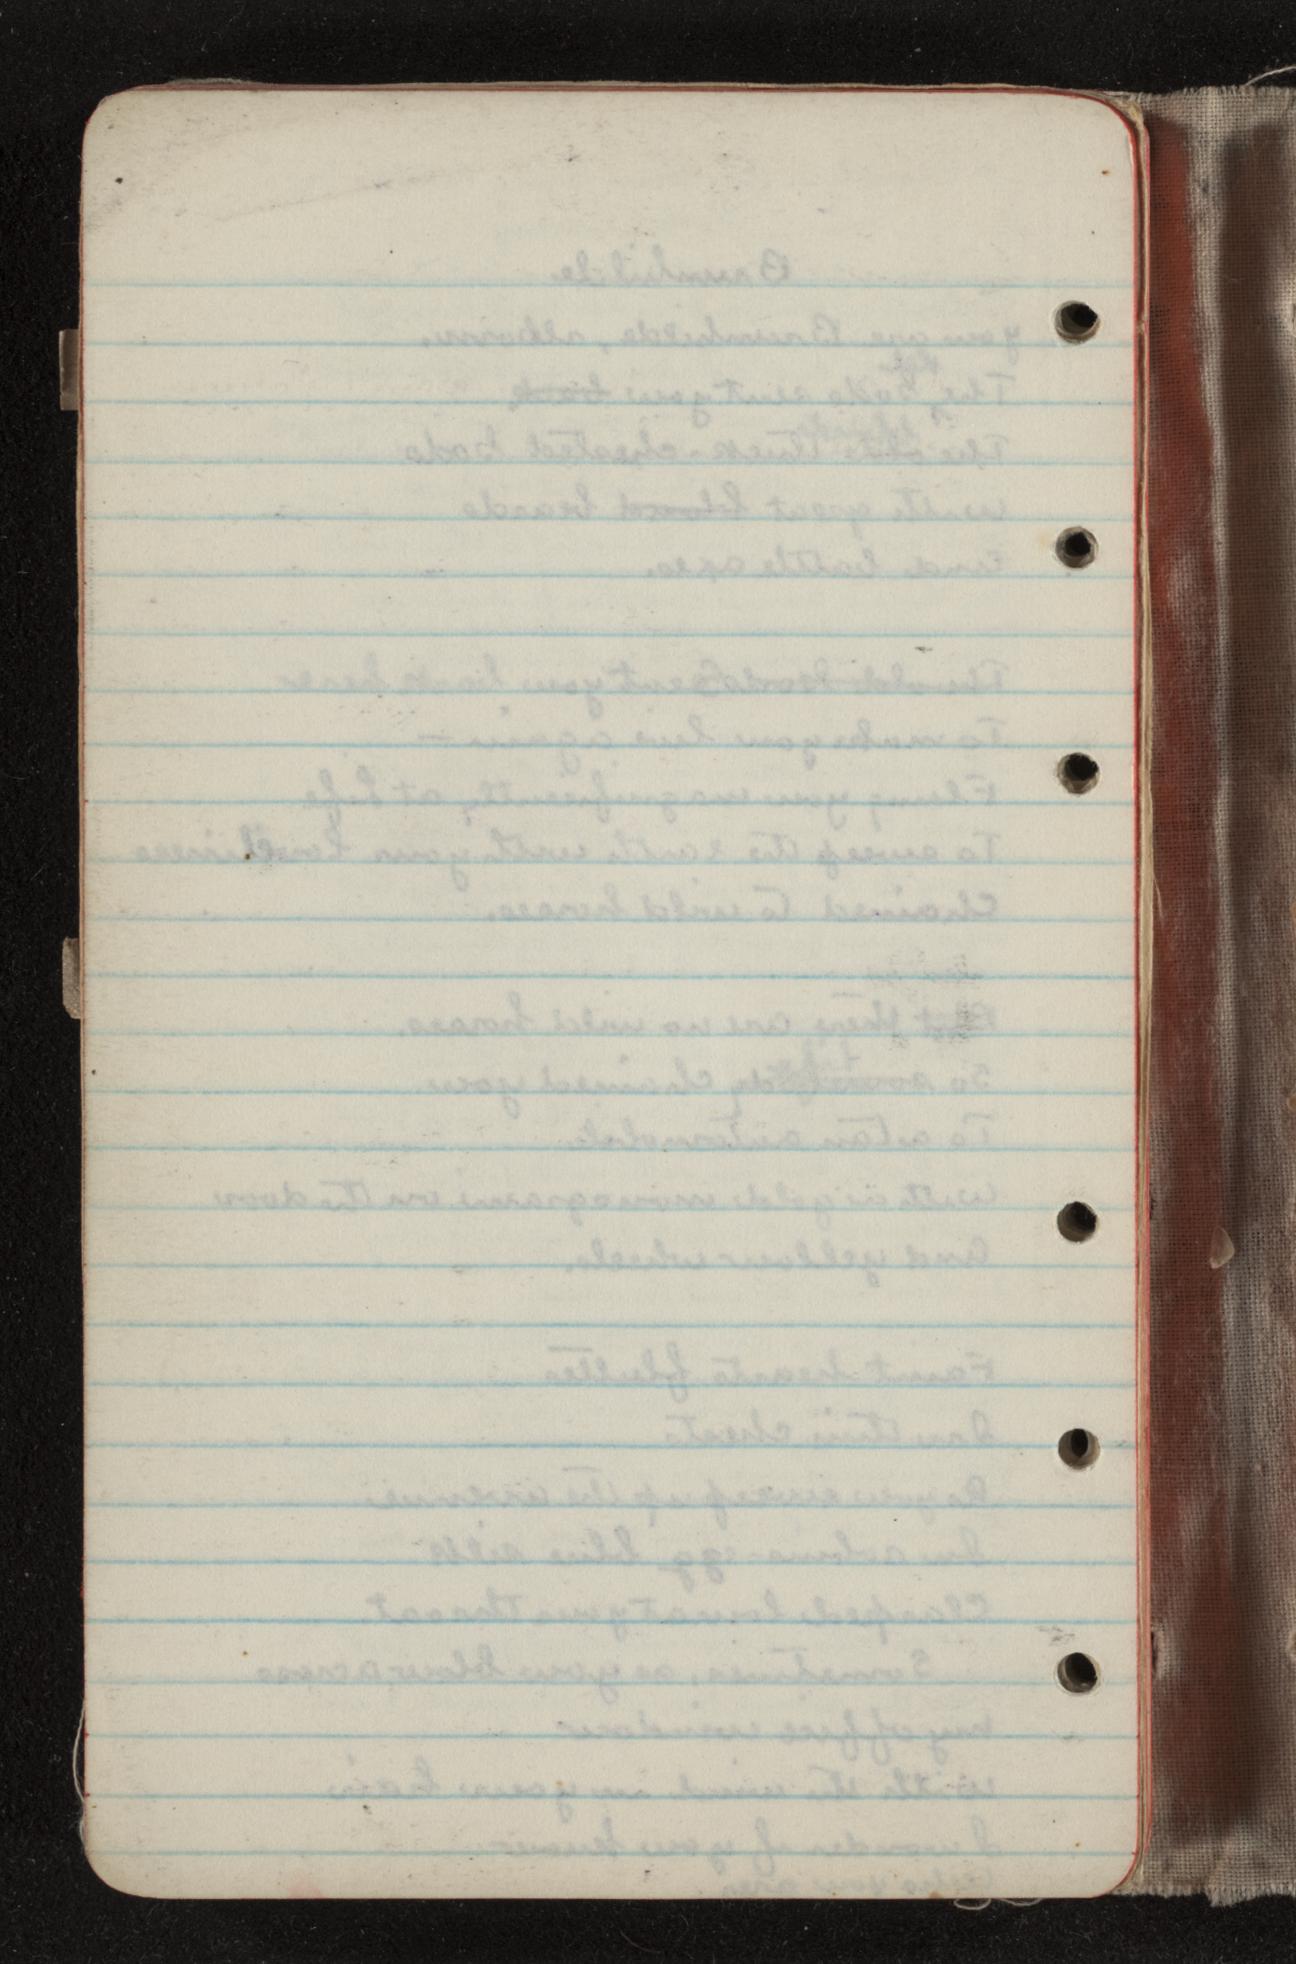 Brunhilde
you are Brunhilde, reborn.
The Gods sent you back
The thick-chested Gods
With great blond beards
And battle axes.
The old Gods sent you back here
To make you live again —
Flung you magnificently at life
To sweep the earth with your loveliness
Chained to wild horses.
But there are no wild horses.
So chained you
To a tan automobile
With a gold monogram on the door
And yellow wheels.
Faint hearts flutter
In thin chests
As you sweep up the avenue
In robin-egg blue silk
Clasped low at your throat.
Sometimes, as you blow across
my office window
With the wind in your hair
I wonder if you know
Who you are.